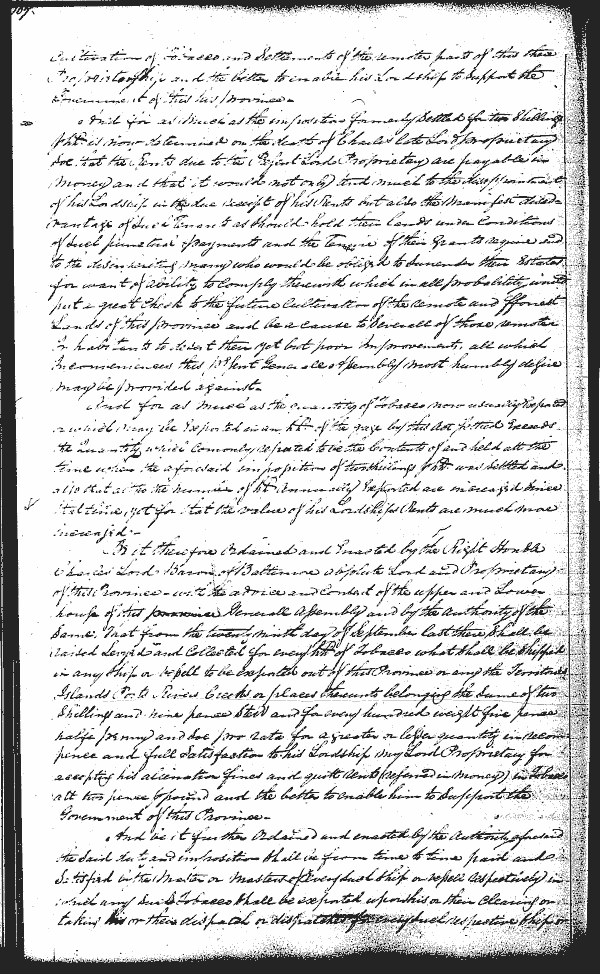 Cultivation of Tobacco and Settlements of the remoter parts of this their
Proprietorship and the better to enable his Lordship to Support the
Government of this his province.
And for as Much as the imposition formerly Settled for two Shillings
hhd is now determined on the death of Charles late Lord proprietary
Soe that the Rents due to the Lord Proprietary are payable in
Money and that it would not only tend much to the disappointment
of his Lordship in the due receipt of his Rents but also the Manifest
vantage of Such Tenants as Should hold their lands under Conditions
of Such payments and the Tenure of their Grants require and
to the disinheriting many who would be obliged to Surrender their Estates
for want of ability to Comply therewith which in all probability would
put a great Check to the future Cultivation of the remote and
Lands of this province and be a cause to Severall of those remoter
Inhabitants to desert their yet but poor Improvements, all which
Inconveniences this pr sent Generall Assembly most humbly desire
may be provided against.
And for as much as the quantity of Tobacco now usually Exported
or which may be Exported in an hhd of the gage by this Act settled Exceeds
the Quantity which Comonly reported to be the Contents of and held att the
time when the aforesaid imposition of two shillings hhd was settled and
also that as to the number of hhds Annually Exported are increased Since
that time, yet for that the value of his Lordships Rents are much more
increased.
Be it therefore Ordained and Enacted by the Right Honble
Charles Lord Baron of Baltemore absolute Lord and Proprietary
of this Province with the advice and consent of the upper and Lower
house of this province Generall Assembly and by the authority of the
Same. That from the twenty ninth day of September last there shall be
raised Levyed and Collected for every hhd of Tobacco what shall be Shipped
in any Ship or vessell to be exported out of this Province or any the Territories
Islands Ports Rivers Creeks or places thereunto belonging the Same of two
Shillings and nine pence Sterl and for every hundred weight five pence
halfe penny and soe pro rata for a greater or lesser quantity in recom
pence and full Satisfaction to his Lordship my Lord Proprietary for
accepting his alienation fines and quitt rents (reserved in money) in Tobacco
att two pence pound and the better to enable him to Support the
Government of this Province.
And be it further Ordained and enacted by the Authority aforesaid
the Said duty and imposition Shall be from time to time paid and
Satisfied by the Master or Masters of every such Ship or vessell respectively in
which any Such Tobacco shall be exported upon his or their Clearing or
taking his or their dispatch or dispatches for every such respective Ship or